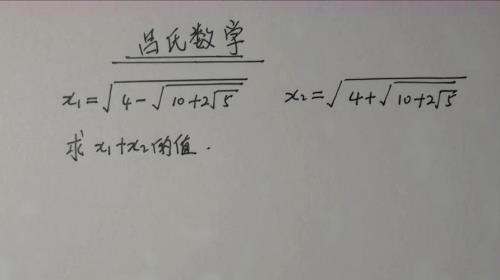 吕氏数学
x₁=√(4-√(10+2√5)) x₂=√(4+√(10+2√5))
求 x₁+x₂的值.